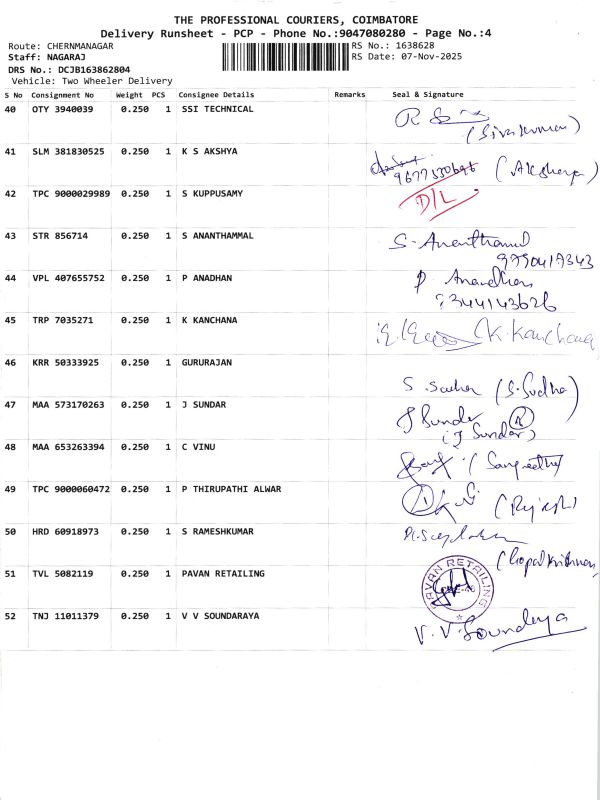 THE PROFESSIONAL COURIERS, COIMBATORE
Delivery Runsheet - PCP - Phone No.:9047080280 - Page No.:4
Route: CHERNMANAGAR RS No.: 1638628
Staff: NAGARAJ RS Date: 07-Nov-2025
DRS No.: DCJB163862804
Vehicle: Two Wheeler Delivery
S No Consignment No Weight PCS Consignee Details Remarks Seal & Signature
40 OTY 3940039 0.250 1 SSI TECHNICAL
(Sivakumar)
41 SLM 381830525 0.250 1 K S AKSHYA
9677530696 (Akshaya)
42 TPC 9000029989 0.250 1 S KUPPUSAMY D/L
43 STR 856714 0.250 1 S ANANTHAMMAL S. Ananthammal
9790417343
44 VPL 407655752 0.250 1 P ANADHAN P Anandhan
9344143626
45 TRP 7035271 0.250 1 K KANCHANA K. Kanchana
46 KRR 50333925 0.250 1 GURURAJAN
S. Sudha (S. Sudha)
47 MAA 573170263 0.250 1 J SUNDAR J Sundar
(J Sundar)
48 MAA 653263394 0.250 1 C VINU (Sangeetha)
49 TPC 9000060472 0.250 1 P THIRUPATHI ALWAR (Rajesh)
50 HRD 60918973 0.250 1 S RAMESHKUMAR
(Gopalkrishnan)
51 TVL 5082119 0.250 1 PAVAN RETAILING PAVAN RETAILING
52 TNJ 11011379 0.250 1 V V SOUNDARAYA V. V. Soundarya